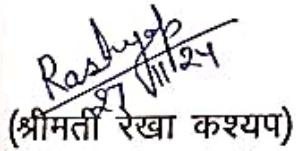 Rashyap
27/11/24
(श्रीमती रेखा कश्यप)